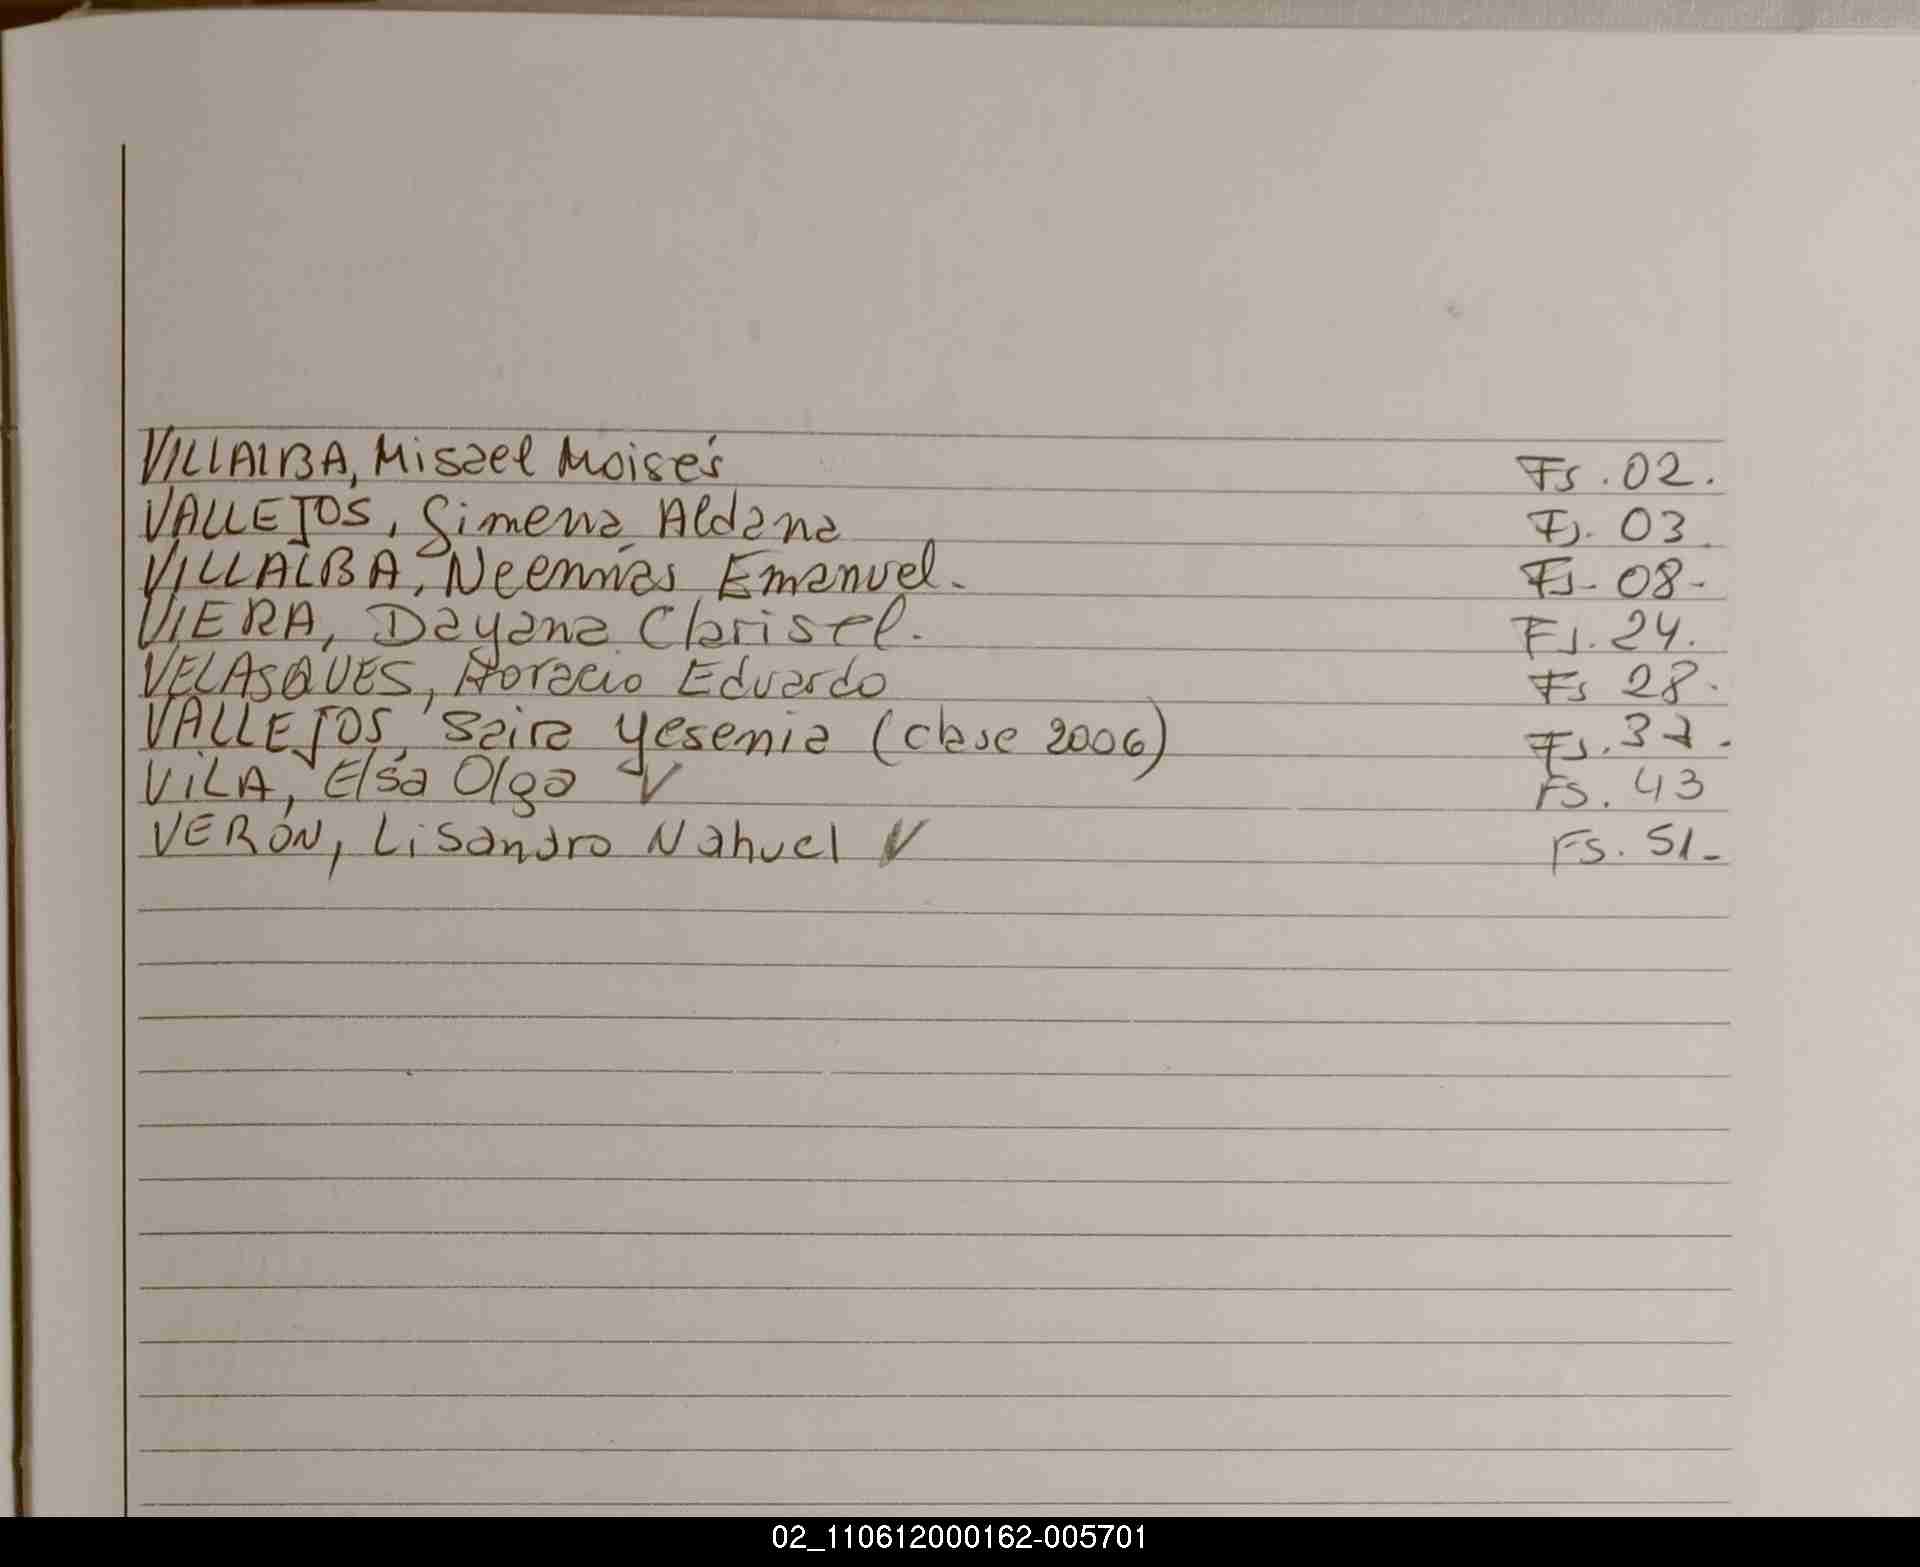 VILLALBA, Misael Moisés Fs. 02.
VALLEJOS, Gimena Aldana Fs. 03.
VILLALBA, Neemías Emanuel. Fs. 08-
VIERA, Dayana Clarisel. Fs. 24.
VELASQUES, Horacio Eduardo Fs 28.
VALLEJOS, Saira Yesenia (clase 2006) Fs. 37.
VILA, Elsa Olga V Fs. 43
VERÓN, Lisandro Nahuel V Fs. 51-
02_110612000162-005701